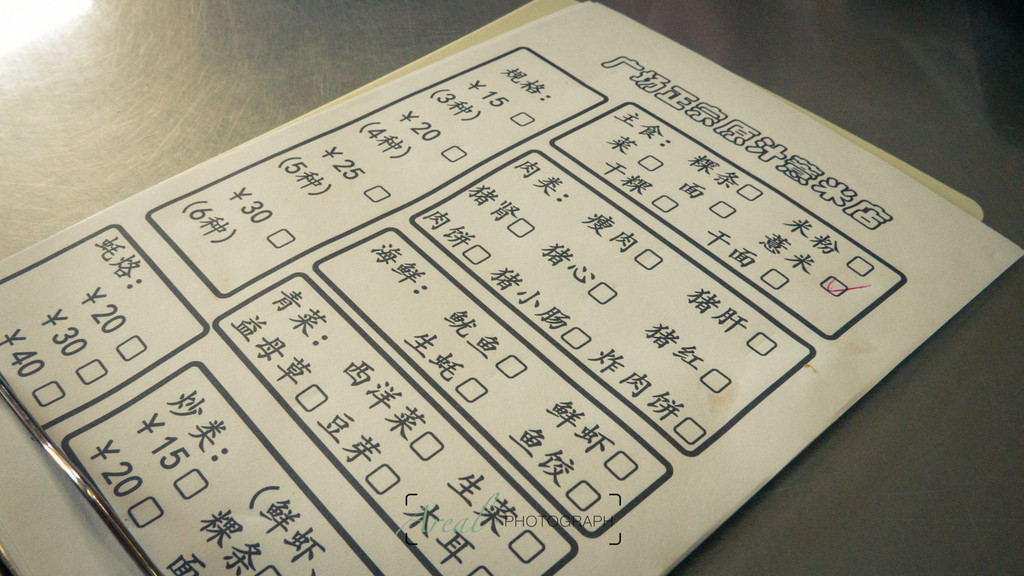 广场正宗原汁薏米店
主食： 粿条□ 米粉□
菜□ 面□ 薏米☑
干粿□ 干面□
肉类： 瘦肉□ 猪肝□
猪肾□ 猪心□ 猪红□
肉饼□ 猪小肠□ 炸肉饼□
海鲜： 鱿鱼□ 鲜虾□
生蚝□ 鱼饺□
青菜： 西洋菜□ 生菜□
益母草□ 豆芽□ 木耳□
规格：
￥15 (3种) □
￥20 (4种) □
￥25 (5种) □
￥30 (6种) □
蚝烙：
￥20 □
￥30 □
￥40 □
炒类： (鲜虾、
￥15 □ 粿条□
￥20 □ 面
Areal PHOTOGRAPH